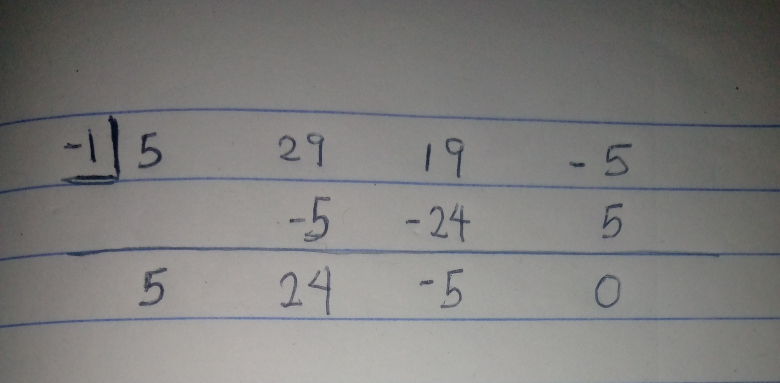 -1 5 29 19 -5
-5 -24 5
5 24 -5 0